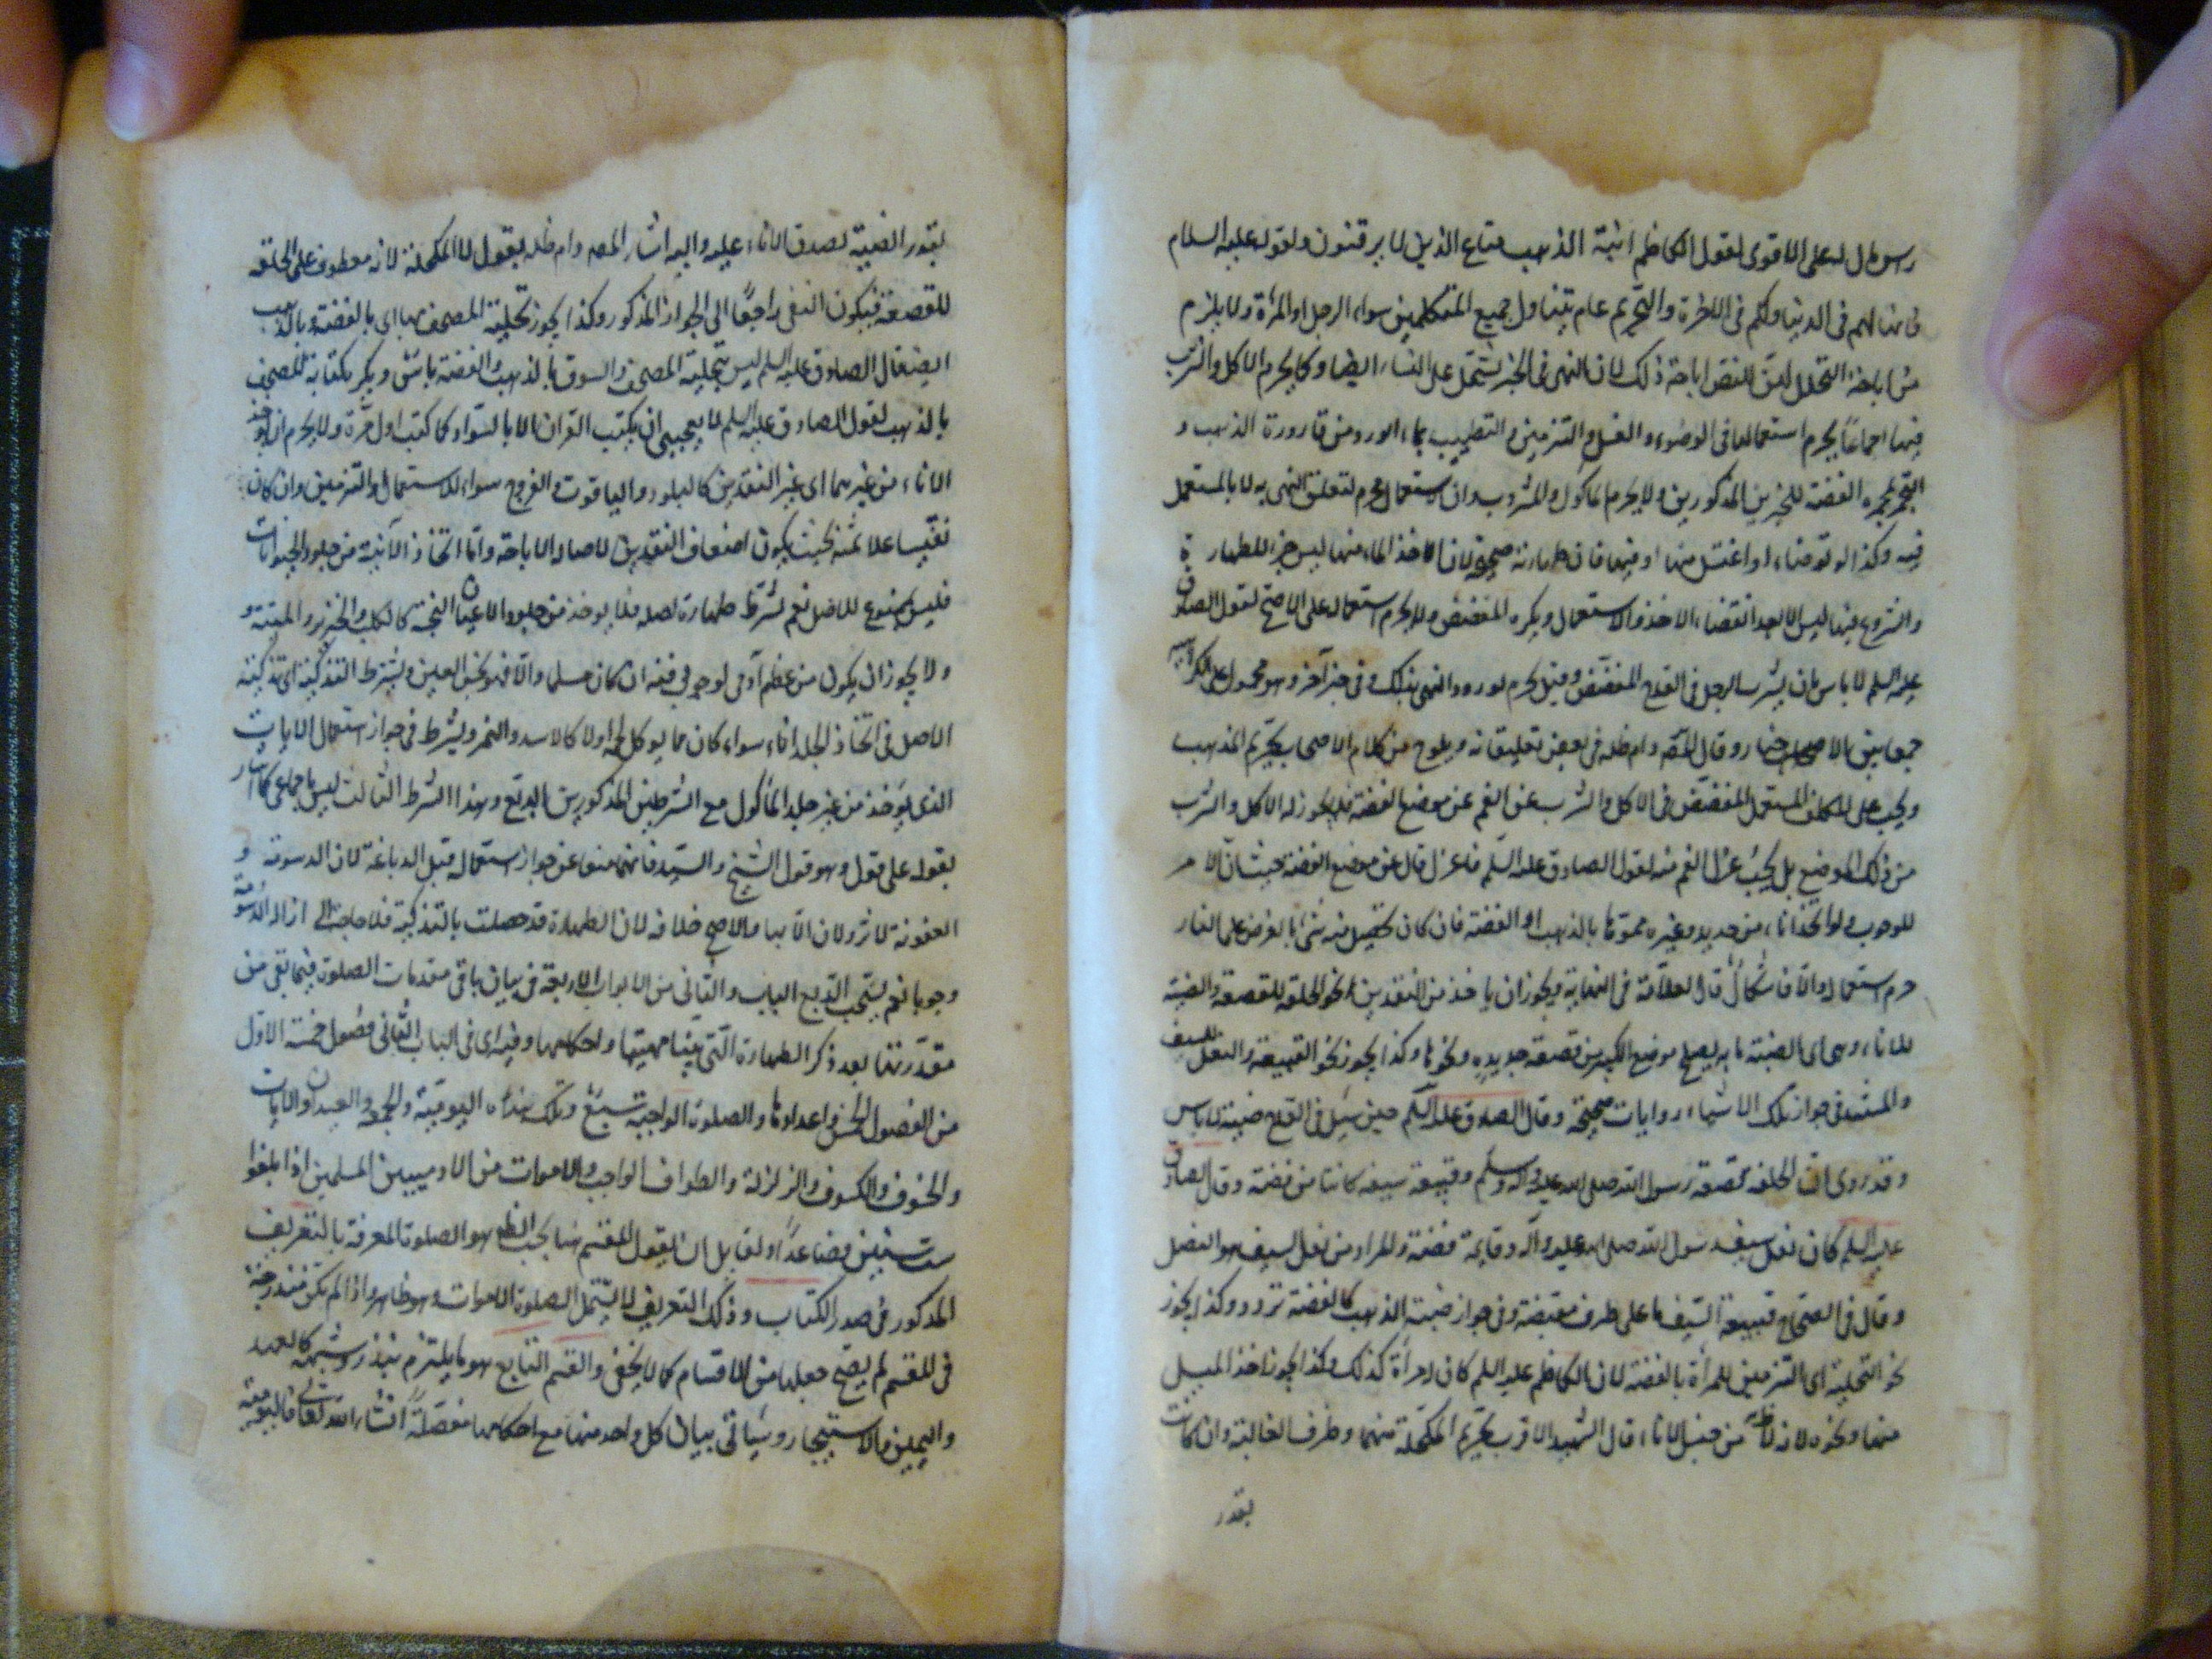 رسول الله على الاقوى لقول الكاظم انية الذهب متاع الذين لا يوقنون ولقوله عليه السلام
فانها لهم فى الدنيا ولكم فى الاخرة والتحريم عام يتناول جميع المتكلمين سواء الرجل او المراة ولا يلزم
من اباحة التحلل لهن للنص اباحة ذلك لان النهى فى الخبر يشتمل على النساء ايضا وكما يحرم الاكل والشرب
فيها اجماعا يحرم استعمالها فى الوضوء والغسل والتزيين والتطييب بماء الورد من قارورة الذهب و
التجمر بمجمرة الفضة للخبرين المذكورين ولا يحرم المأكول والمشروب وان استعمال محرم لتعلق النهى به لا بالمستعمل
فيه وكذا لو توضاء او اغتسل منها او فيها فان طهارته صحيحة لان اخذ الماء منها ليس جزء للطهارة
والشروع فيها ليس الا بعد انقضاء الاخذ والاستعمال ويكره المفضض ولا يحرم استعماله على الاصح لقول الصادق
عليه السلم لا باس بان يشرب الرجل فى القدح المفضض وقيل يحرم لورود النهى بذلك وفى خبر آخر وهو محمول على الكراهية
جمعا بين الاخبار وقال المصه دام ظله فى بعض تعليقاته ويلوح من كلام الاصحاب تحريم المذهب
ويجب على المكلف المستعمل المفضض فى الاكل والشرب عزل الفم عن موضع الفضة فلا يجوز له الاكل والشرب
من ذلك الموضع بل يجب عزل الفم منه لقول الصادق عليه السلم فاعزل فاك عن موضع الفضة حيث ان الامر
للوجوب ولو اتخذ اناء من حديد وغيره مموها بالذهب او الفضة فان كان يحصل منه شئ بالعرض على النار
حرم استعماله والا فاشكال قال العلامة فى النهاية ويجوز ان ياخذ من النقدين نحو الحلقة للقصعة والضبة
للاناء وهى اى الضبة ما به يصلح موضع الكسر من قصعة حديد ونحوها وكذا يجوز نحو القبيعة والنعل للسيف
والمستند فى جواز تلك الاشياء روايات صحيحة وقال الصادق عليه السلم حين سئل فى القدح ضبة لا باس
وقد روى ان الحلقة لقصعة رسول الله صلى الله عليه وآله وسلم وقبيعة سيفه كانتا من فضة وقال الصادق
عليه السلم كان نعل سيف رسول الله صلى الله عليه وآله وقائمة فضة والمراد من نعل السيف هو النصل
وقال فى الصحاح قبيعة السيف ما على طرف مقبضه وفى جواز ضبة الذهب كالفضة تردد وكذا يجوز
نحو التحلية اى التزيين للمرأة بالفضة لان الكاظم عليه السلم كان لمرأة كذلك وكذا يجوز اخذ الميل
منها ونحوه لانه ليس من جنس الاناء قال الشهيد الاقرب تحريم المكحلة منهما وظرف الغالية وان كانت
بقدر
بقدر الضبة لصدق الاناء عليه واليه اشار المصه دام ظله بقوله لا المكحلة لانه معطوف على الحلقة
للقصعة فيكون النفى راجعا الى الجواز المذكور وكذا يجوز تحلية المصحف بها اى بالفضة وبالذهب
ايضا قال الصادق عليه السلم ليس بتحلية المصحف والسيوف بالذهب والفضة باس ويكره كتابة المصحف
بالذهب لقول الصادق عليه السلم لا يعجبنى ان يكتب القران الا بالسواد كما كتب اول مرة ولا يحرم ان يؤخذ
الاناء من غيرهما اى غير النقدين كالبلور والياقوت والفيروزج سواء للاستعمال والتزيين وان كان
نفيسا غلا ثمنه بحيث يكون اضعاف النقدين لاصالة الاباحة واما اتخاذ الآنية من جلود الحيوانات
فليس بممنوع للاصل نعم يشترط طهارة اصله فلا يؤخذ من جلود الاعيان النجسة كالكلب والخنزير والميتة و
ولا يجوز ان يكون من عظم آدمى لوجوب دفنه ان كان مسلما والا فهو نجس العين ويشترط التذكية اى تذكية
الاصل فى اتخاذ الجلد اناء سواء كان مما يوكل لحمه اولا كالاسد والنمر ويشترط فى جواز استعمال الاهاب
الذى يؤخذ من غير جلد المأكول مع الشرطين المذكورين الدبغ وهذا الشرط الثالث ليس باجماعى كما اشار
بقوله على قول وهو قول الشيخ والسيد فانهما منعا عن جواز استعماله قبل الدباغة لان الدسومة و
العفونة لا تزولان الا بها والاصح خلافه لان الطهارة قد حصلت بالتذكية فلا حاجة الى ازالة الدسومة
وجوبا نعم يستحب الدبغ الباب والثانى من الابواب الاربعة فى بيان باقى مقدمات الصلوة فيما بقى من
مقدمتها بعد ذكر الطهارة التى بينا مهيتها واحكامها وفيه اى فى الباب الثانى فصول خمسة الاول
من الفصول الخمس فى اعدادها والصلوة الواجبة تسع وتلك هذه اليومية والجمعة والعيدان والايات
والخسوف والكسوف والزلزلة والطواف الواجب والاموات من الادميين المسلمين اذا بلغوا
ست سنين فصاعدا ولقائل ان يقول المقسم هنا بحسب الظاهر هو الصلوة المعرفة بالتعريف
المذكور فى صدر الكتاب وذلك التعريف لا يشمل الصلوة الاموات وهو ظاهر واذا لم تكن مندرجة
فى المقسم لم يصح جعلها من الاقسام كما لا يخفى والقسم التابع هو ما يلتزم بنذر وشبهه كالعهد
واليمين والاستيجار وسيأتى بيان كل واحد منها مع احكامها مفصلة انشاء الله تعالى فاليومية